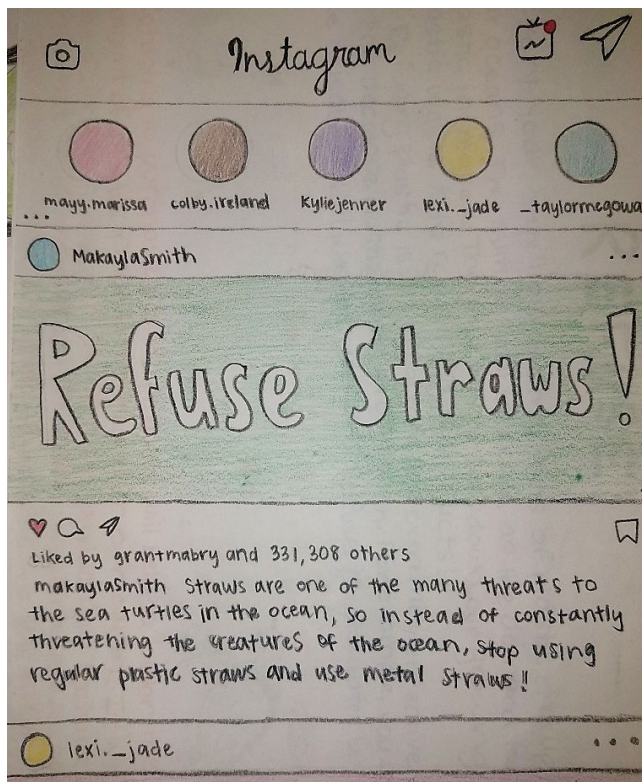 Instagram
mayy.marissa colby.ireland Kyliejenner lexi._jade _taylormcgowa
MakaylaSmith
Refuse Straws!
Liked by grantmabry and 331,308 others
makaylaSmith Straws are one of the many threats to
the sea turtles in the ocean, so instead of constantly
threatening the creatures of the ocean, stop using
regular plastic straws and use metal straws!!
lexi._jade